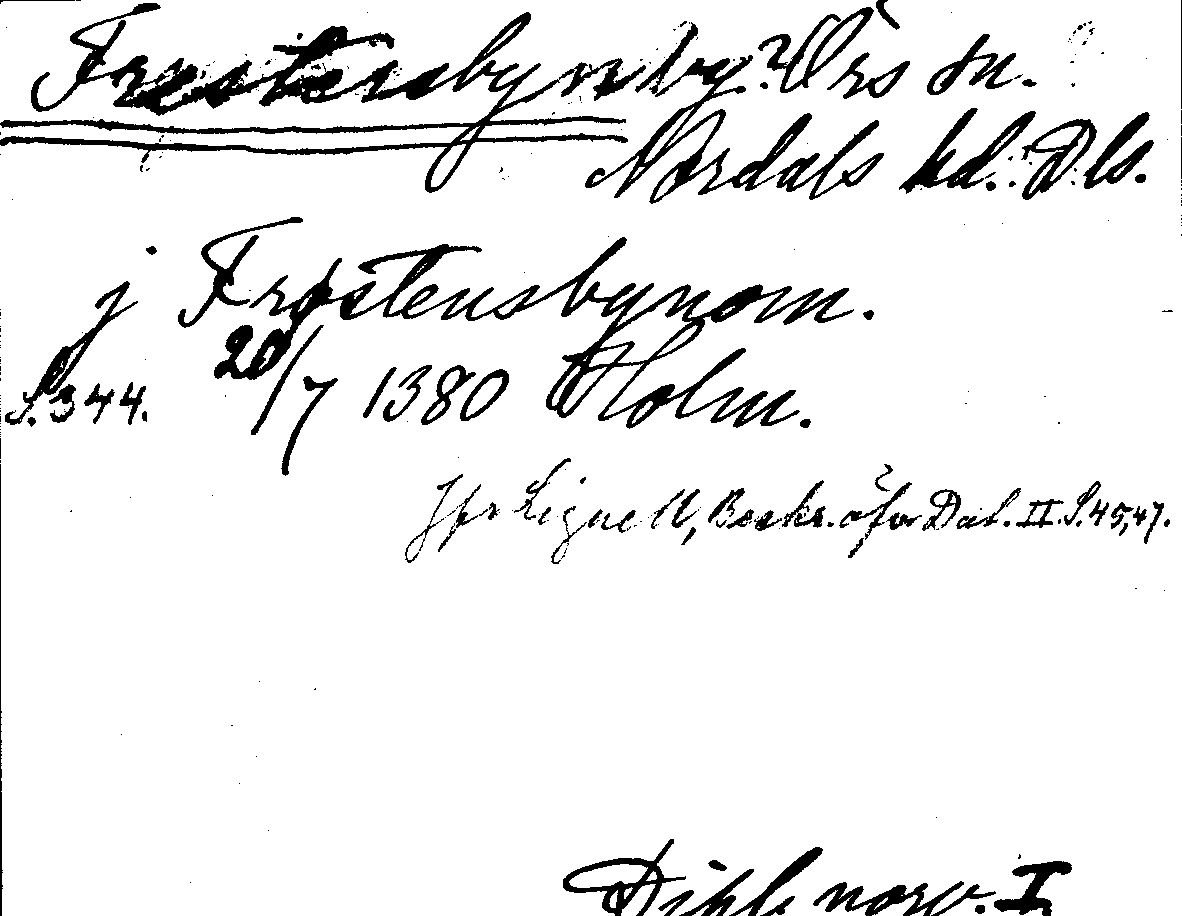 Frestersbyn by? Örs sn.
Nordals hd. Dls.
j Frøstensbynom.
S. 344. 20/7 1380 Holm.
Jfr Lignell, Beskr. öfver Dal. II. S. 45, 47.
Dipl. norv. I.